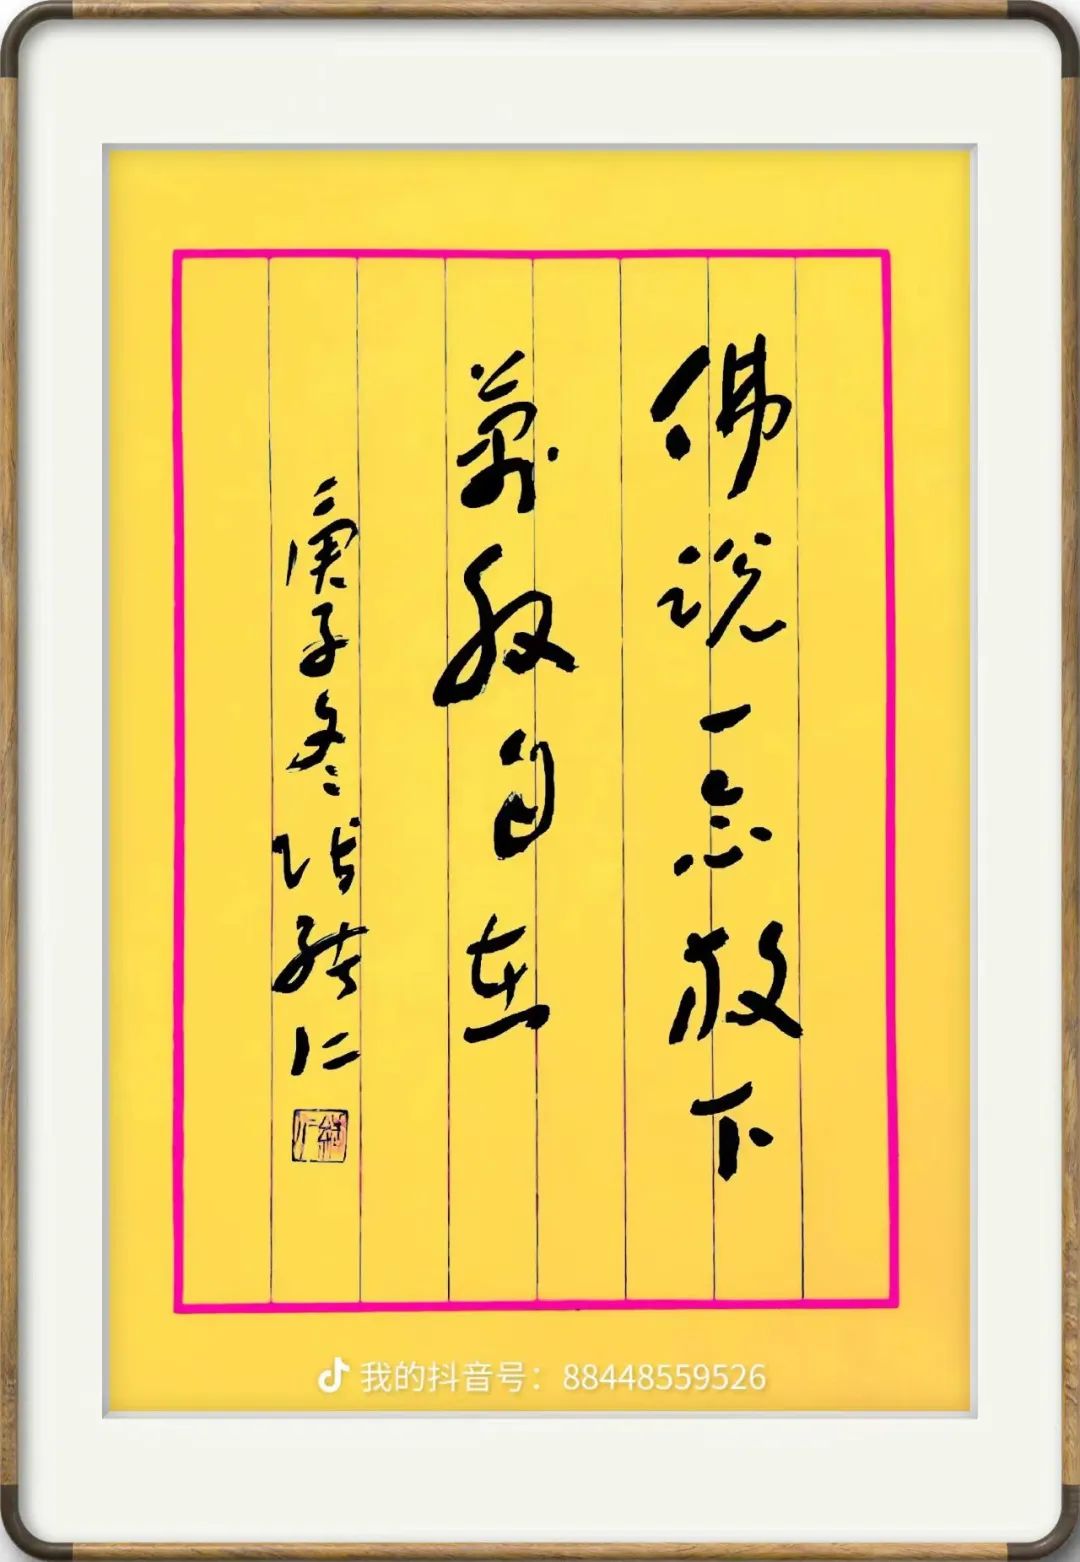 佛说一念放下
萬般自在
庚子冬张仁
我的抖音号：88448559526